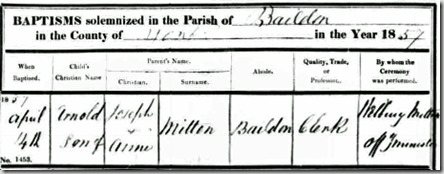 BAPTISMS solemnized in the Parish of Baildon
in the County of York in the Year 1857
When Baptised. Child's Christian Name Parent's Name. Christian. Surname. Abode. Quality, Trade, or Profession. By whom the Ceremony was performed.
1857
April Arnold Joseph
4th Son of Annie Mitton Baildon Clerk Mitton
No. 1453. off Minister